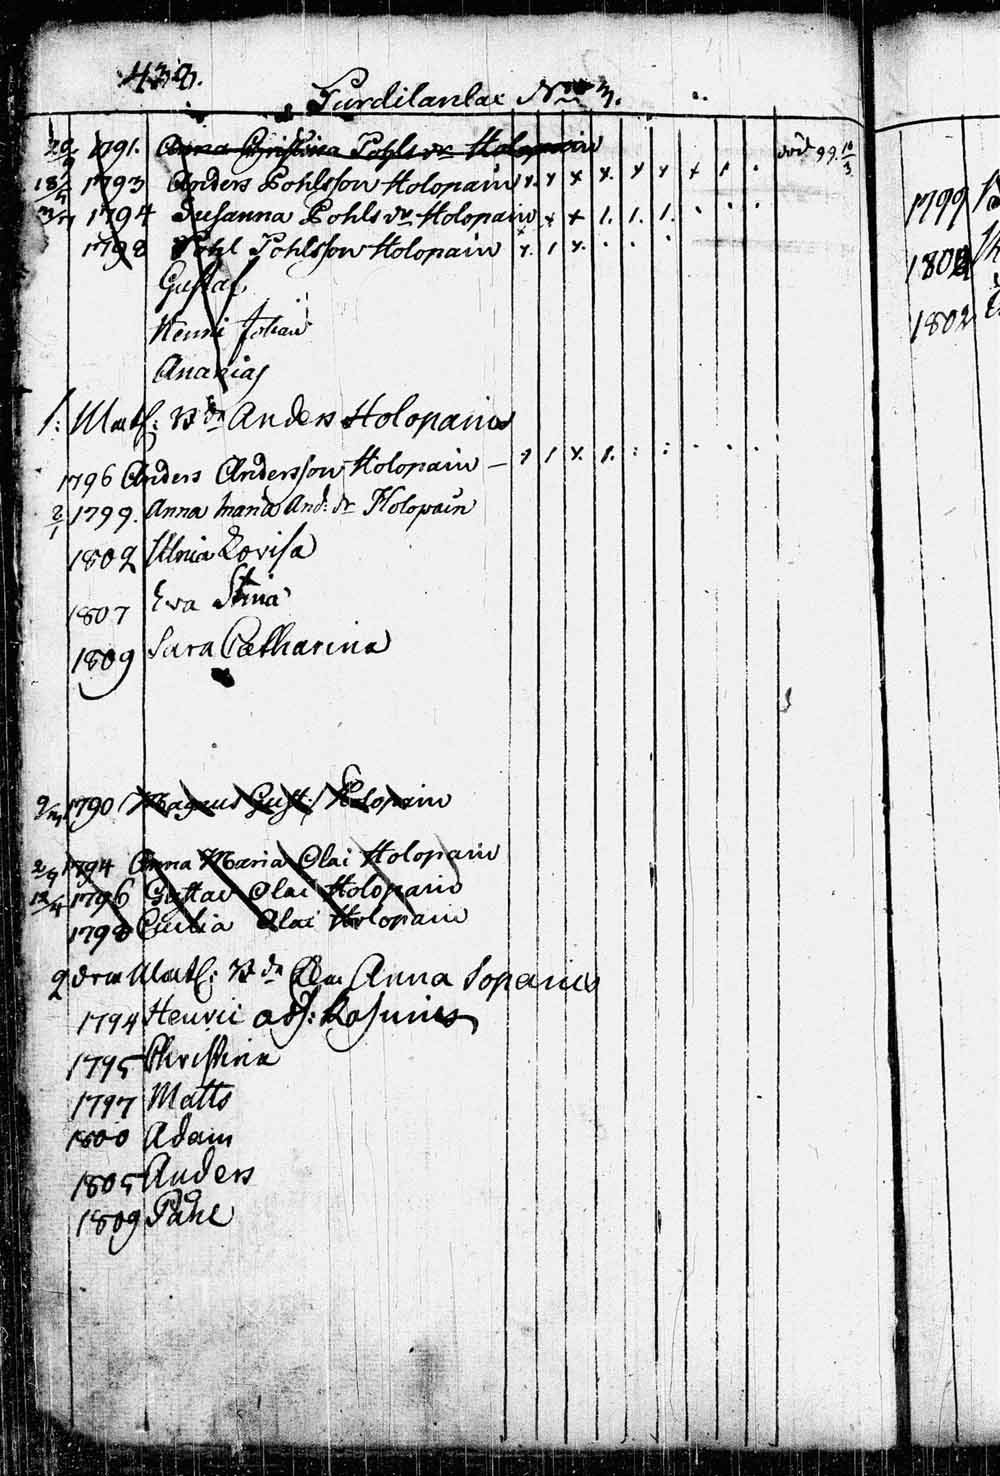 432.
Purdilanlax No 3.
20/9 1791. Anna Christina Pohls dr Holopain död 99. 10/3
18/5 1793 Anders Pohlsson Holopain
1794 Susanna Pohls dr Holopain
1798 Pohl Pohlsson Holopain
Gustaf
Henric Johan
Ananias
1: Anders Holopain
1796 Anders Andersson Holopain
2/1 1799. Anna Maria And: dr Holopain
1802 Ulrica Lovisa
1807 Eva Stina
1809 Sara Catharina
1790 Magnus Gust: Holopain
2/9 1794 Anna Maria Olai Holopain
12/4 1796 Gustav Olai Holopain
1798 Olai Holopain
2 Anna
1794 Henric
1795 Christina
1797 Matts
1800 Adam
1805 Anders
1809 Påhl
1799
1802
1802